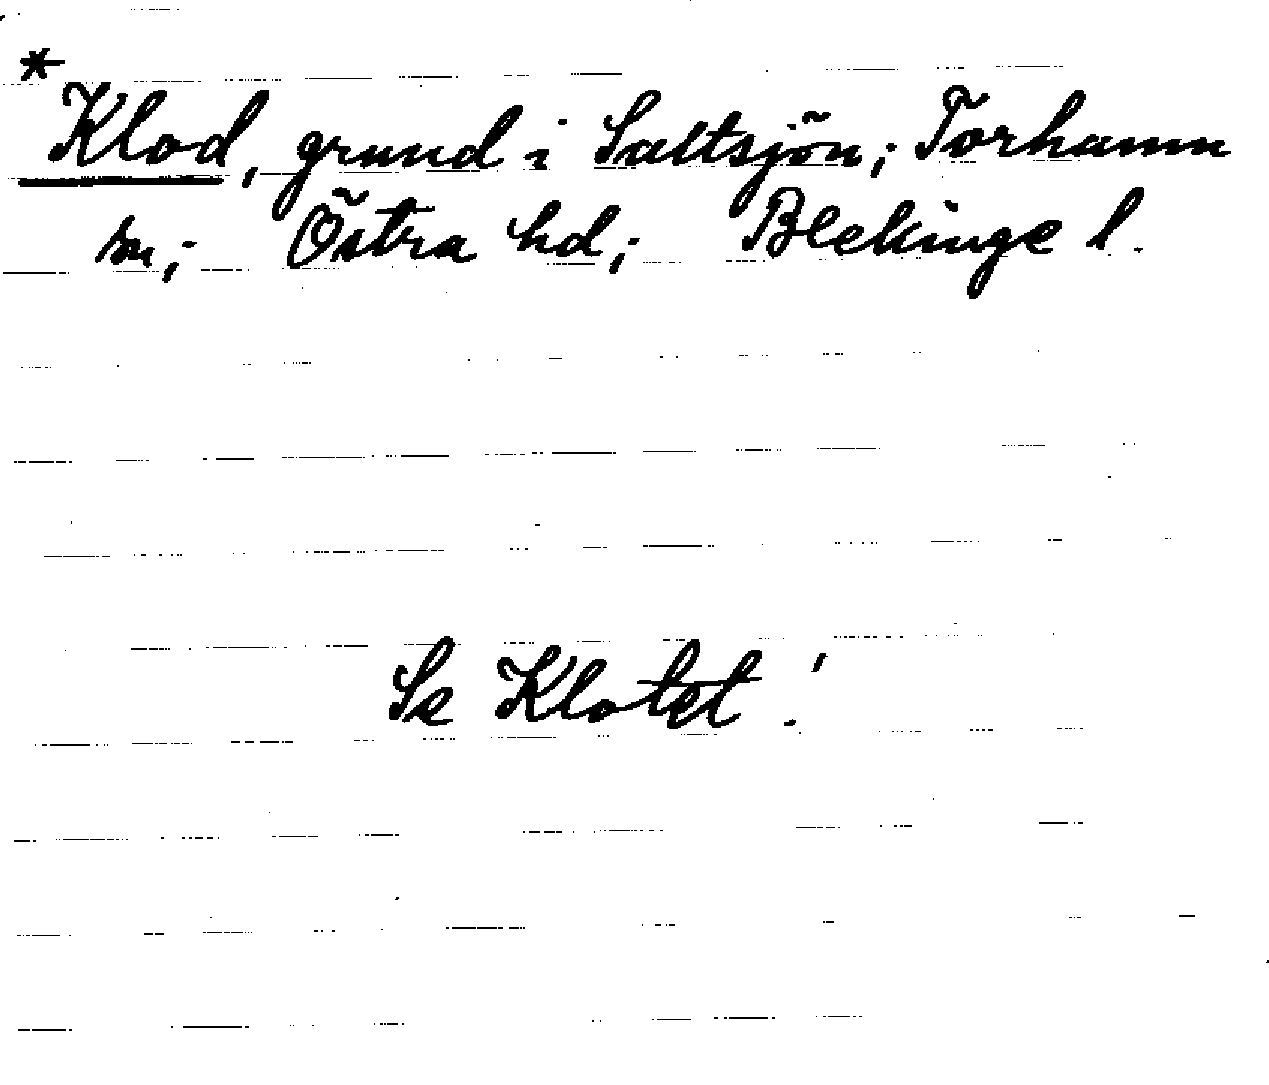 *Klod, grund i Saltsjön; Torhamn
sn; Östra hd; Blekinge l.
Se Klotet!